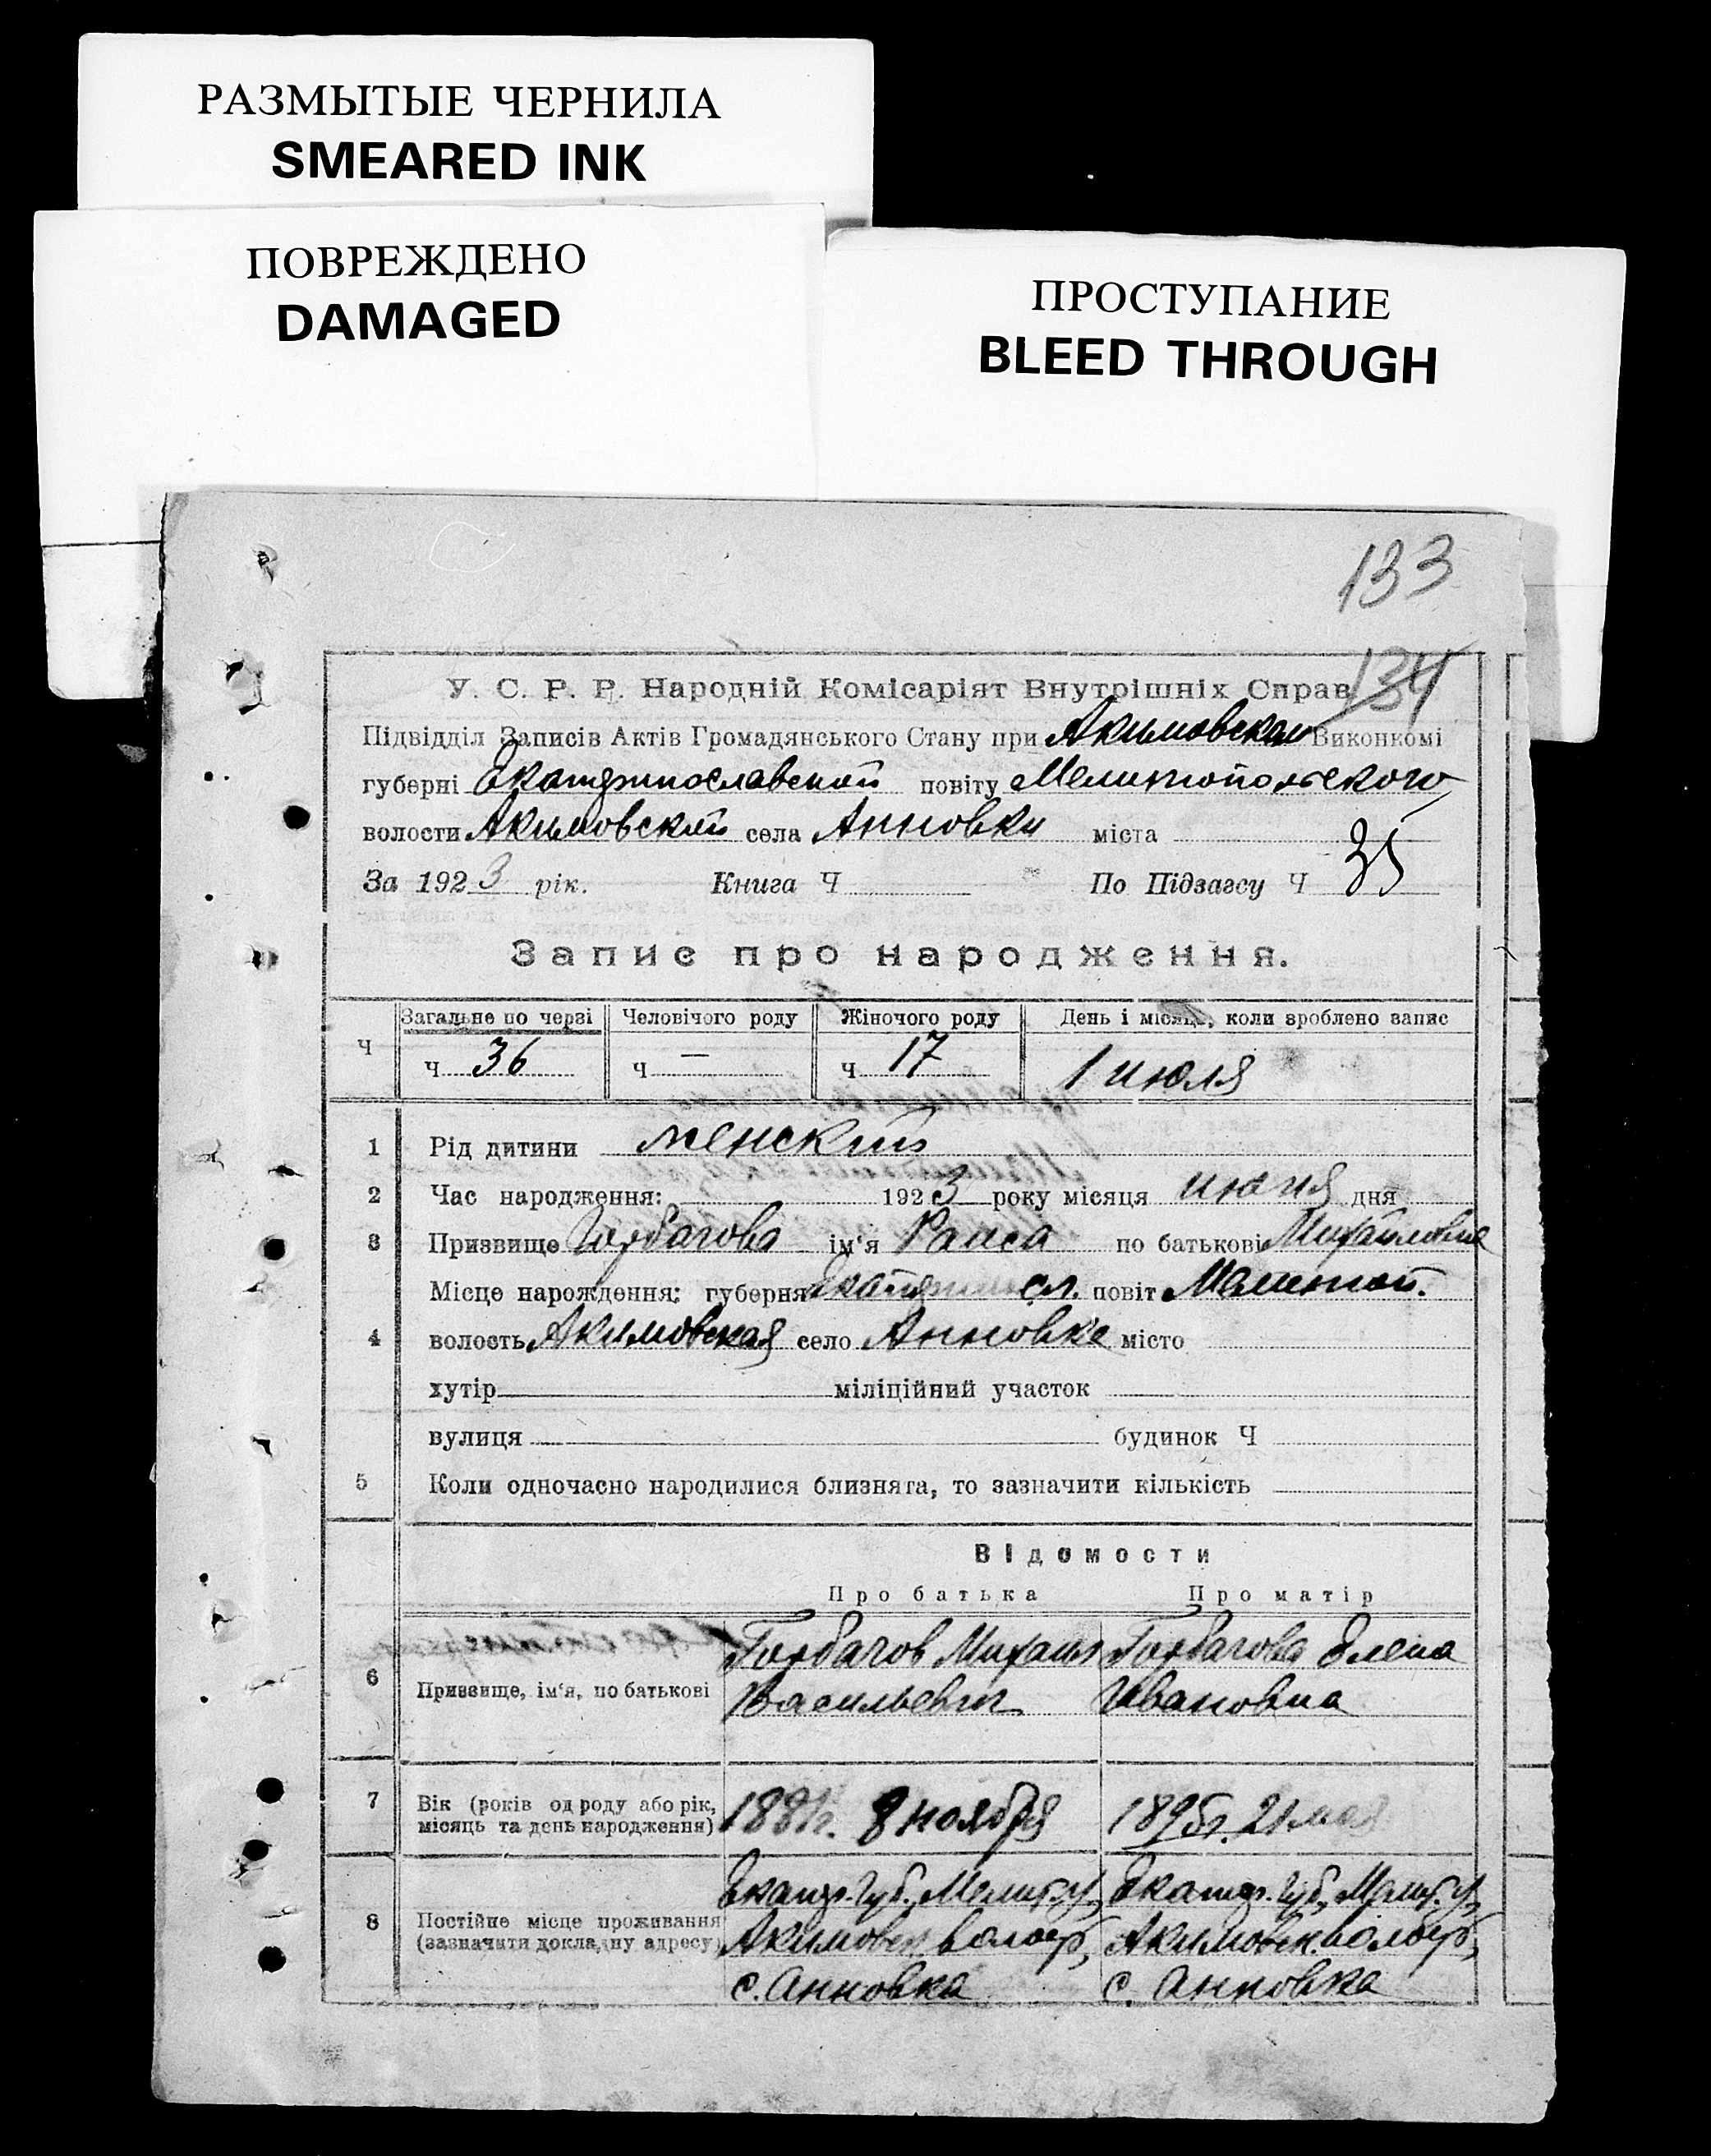 РАЗМЫТЫЕ ЧЕРНИЛА
SMEARED INK
ПОВРЕЖДЕНО
DAMAGED
ПРОСТУПАНИЕ
BLEED THROUGH
133
134
У. С. Р. Р. Народній Комісаріят Внутрішніх Справ
Підвідділ Записів Актів Громадянського Стану при Акимовском Виконкомі
губерні Екатеринославской повіту Мелитопольского
волости Акимовской села Анновки міста
За 1923 рік. Книга Ч По Підзагсу Ч 35
Запис про народження.
Загальне по черзі Человічого роду Жіночого роду День і місяць, коли зроблено запис
Ч Ч 36 Ч — Ч 17 1 июля
1 Рід дитини женский
2 Час народження: 1923 року місяця июня дня
3 Призвище Горбачова ім'я Раиса по батькові Михайловна
Місце народження: губерня Екатеринсл. повіт Мелитоп.
4 волость Акимовская село Анновка місто
хутір міліційний участок
вулиця будинок Ч
5 Коли одночасно народилися близнята, то зазначити кількість
Відомости
Про батька Про матір
Горбачов Михаил Горбачова Елена
6 Призвище, ім'я, по батькові Васильевич Ивановна
7 Вік (років од роду або рік, 1881г. 8 ноября 1895г. 21 мая
місяць та день народження)
Екатер. Губ., Мелит. у, Екатер. Губ., Мелит. у,
8 Постійне місце проживання Акимовск. волост, Акимовск. волост,
(зазначити докладну адресу)
с. Анновка с. Анновка